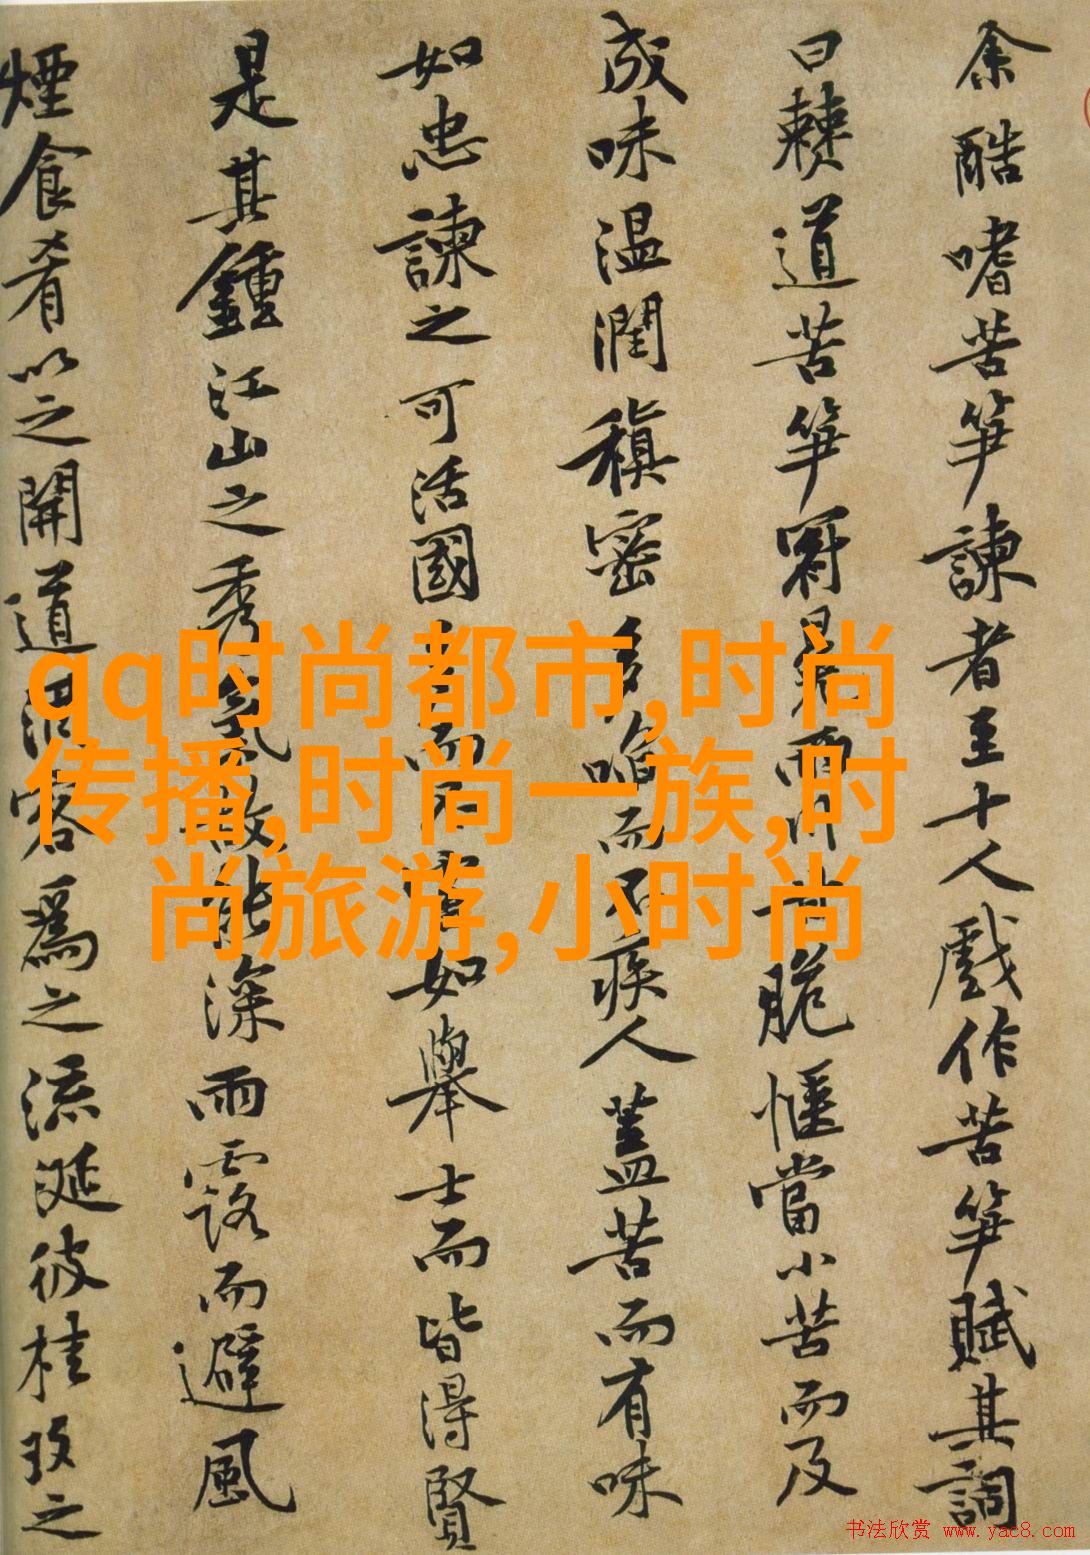 余酷嗜苦笋諫者至十人戲作苦笋賦其詞
曰棘道苦笋冠冕兩川甘脆惬當小苦而及
成味温潤稹密多啗而不疾人蓋苦而有味
如忠諫之可活國多而不害如舉士而皆得賢
是其鍾江山之秀氣故能深雨露而避風
煙食肴以之開道酒客爲之流涎彼桂玫之
qq时尚都市,时尚
传播,时尚一族,时
尚旅游,小时尚
书法欣赏 www.yac8.com